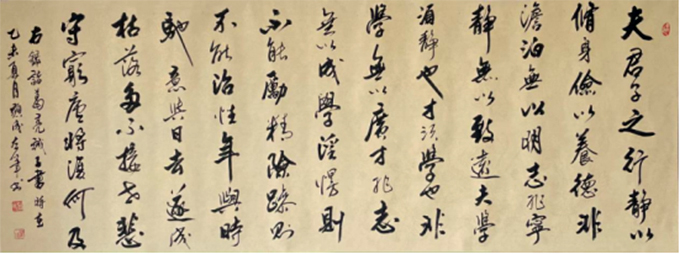 夫君子之行静以
脩身儉以養德非
澹泊無以明志非寧
静無以致遠夫學
須静也才須學也非
學無以廣才非志
無以成學淫慢則
不能勵精險躁則
不能治性年與時
馳意與日去遂成
枯落多不接世悲
守窮廬將復何及
右録諸葛亮誡子書
乙未夏月 书